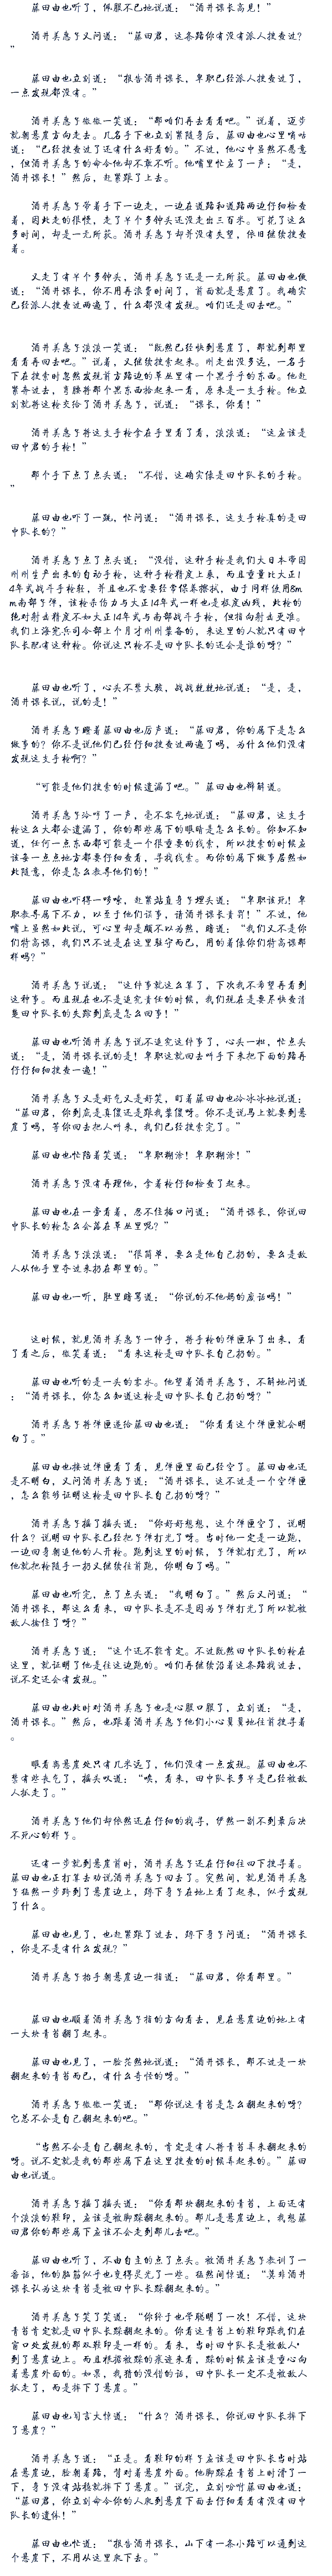 藤田由也听了，佩服不已地说道：“酒井课长高见！”
酒井美惠子又问道：“藤田君，这条路你有没有派人搜查过？
”
藤田由也立刻道：“报告酒井课长，卑职已经派人搜查过了，
一点发现都没有。”
酒井美惠子微微一笑道：“那咱们再去看看吧。”说着，迈步
就朝悬崖方向走去。几名手下也立刻紧随身后，藤田由也心里嘀咕
道：“已经搜查过了还有什么好看的。”不过，他心中虽然不愿意
，但酒井美惠子的命令他却不敢不听。他嘴里忙应了一声：“是，
酒井课长！”然后，赶紧跟了上去。
酒井美惠子带着手下一边走，一边在道路和道路两边仔细检查
着，因此走的很慢，走了半个多钟头还没走出三百米。可花了这么
多时间，却是一无所获。酒井美惠子却并没有失望，依旧继续搜查
着。
又走了有半个多钟头，酒井美惠子还是一无所获。藤田由也便
道：“酒井课长，你不用再浪费时间了，前面就是悬崖了。我确实
已经派人搜查过两遍了，什么都没有发现。咱们还是回去吧。”
酒井美惠子淡淡一笑道：“既然已经快到悬崖了，那就到那里
看看再回去吧。”说着，又继续搜索起来。刚走出没多远，一名手
下在搜索时忽然发现前方路边的草丛里有一个黑乎乎的东西。他赶
紧奔过去，弯腰将那个黑东西拾起来一看，原来是一支手枪。他立
刻就将这枪交给了酒井美惠子，说道：“课长，你看！”
酒井美惠子将这支手枪拿在手里看了看，淡淡道：“这应该是
田中君的手枪！”
那个手下点了点头道：“不错，这确实像是田中队长的手枪。
”
藤田由也吓了一跳，忙问道：“酒井课长，这支手枪真的是田
中队长的？”
酒井美惠子点了点头道：“没错，这种手枪是我们大日本帝国
刚刚生产出来的自动手枪，这种手枪精度上乘，而且重量比大正1
4年式战斗手枪轻，并且也不需要经常保养擦拭，由于同样使用8m
m南部手弹，该枪杀伤力与大正14年式一样也是极度凶残，此枪的
绝对射击精度不如大正14年式与南部战斗手枪，但指向射击更准。
我们上海宪兵司令部上个月才刚刚装备的，来这里的人就只有田中
队长配有这种枪。你说这只枪不是田中队长的还会是谁的呀？”
藤田由也听了，心头不禁大骇，战战兢兢地说道：“是，是，
酒井课长说，说的是！”
酒井美惠子瞪着藤田由也厉声道：“藤田君，你的属下是怎么
做事的？你不是说他们已经仔细搜查过两遍了吗，为什么他们没有
发现这支手枪啊？”
“可能是他们搜索的时候遗漏了吧。”藤田由也辩解道。
酒井美惠子冷哼了一声，毫不客气地说道：“藤田君，这支手
枪这么大都会遗漏了，你的那些属下的眼睛是怎么长的。你知不知
道，任何一点东西都可能是一个很重要的线索，所以搜索的时候应
该每一点点地方都要仔细查看，寻找线索。而你的属下做事居然如
此随意，你是怎么教导他们的！”
藤田由也吓得一哆嗦，赶紧站直身子埋头道：“卑职该死！卑
职教导属下不力，以至于他们误事，请酒井课长责罚！”不过，他
嘴上虽然如此说，可心里却是颇不以为然，暗道：“我们又不是你
们特高课，我们只不过是在这里驻守而已，用的着像你们特高课那
样吗？”
酒井美惠子说道：“这件事就这么算了，下次我不希望再看到
这种事。而且现在也不是追究责任的时候，我们现在是要尽快查清
楚田中队长的失踪到底是怎么回事！”
藤田由也听酒井美惠子说不追究这件事了，心头一松，忙点头
道：“是，酒井课长说的是！卑职这就回去叫手下来把下面的路再
仔仔细细搜查一遍！”
酒井美惠子又是好气又是好笑，盯着藤田由也冷冰冰地说道：
“藤田君，你到底是真傻还是跟我装傻呀。你不是说马上就要到悬
崖了吗，等你回去把人叫来，我们已经搜索完了。”
藤田由也忙陪着笑道：“卑职糊涂！卑职糊涂！”
酒井美惠子没有再理他，拿着枪仔细检查了起来。
藤田由也在一旁看着，忍不住插口问道：“酒井课长，你说田
中队长的枪怎么会落在草丛里呢？”
酒井美惠子淡淡道：“很简单，要么是他自己扔的，要么是敌
人从他手里夺过来扔在那里的。”
藤田由也一听，肚里暗骂道：“你说的不他妈的废话吗！”
这时候，就见酒井美惠子一伸手，将手枪的弹匣取了出来，看
了看之后，微笑着道：“看来这枪是田中队长自己扔的。”
藤田由也听的是一头的雾水。他望着酒井美惠子，不解地问道
：“酒井课长，你怎么知道这枪是田中队长自己扔的呀？”
酒井美惠子将弹匣递给藤田由也道：“你看看这个弹匣就会明
白了。”
藤田由也接过弹匣看了看，见弹匣里面已经空了。藤田由也还
是不明白，又问酒井美惠子道：“酒井课长，这不过是一个空弹匣
，怎么能够证明这枪是田中队长自己扔的呀？”
酒井美惠子摇了摇头道：“你好好想想，这个弹匣空了，说明
什么？说明田中队长已经把子弹打光了呀。当时他一定是一边跑，
一边回身朝追他的人开枪。跑到这里的时候，子弹就打光了，所以
他就把枪随手一扔又继续往前跑，你明白了吗。”
藤田由也听完，点了点头道：“我明白了。”然后又问道：“
酒井课长，那这么看来，田中队长是不是因为子弹打光了所以就被
敌人擒住了呀？”
酒井美惠子道：“这个还不能肯定。不过既然田中队长的枪在
这里，就证明了他是往这边跑的。咱们再继续沿着这条路找过去，
说不定还会有发现。”
藤田由也此时对酒井美惠子也是心服口服了，立刻道：“是，
酒井课长。”然后，也跟着酒井美惠子他们小心翼翼地往前搜寻着
。
眼看离悬崖处只有几米远了，他们没有一点发现。藤田由也不
禁有些丧气了，摇头叹道：“唉，看来，田中队长多半是已经被敌
人抓走了。”
酒井美惠子他们却依然还在仔细的找寻，俨然一副不到最后决
不死心的样子。
还有一步就到悬崖前时，酒井美惠子还在仔细往四下搜寻着。
藤田由也正打算去劝说酒井美惠子回去了。突然间，就见酒井美惠
子猛然一步跨到了悬崖边上，蹲下身子在地上看了起来，似乎发现
了什么。
藤田由也见了，也赶紧跟了过去，蹲下身子问道：“酒井课长
，你是不是有什么发现？”
酒井美惠子抬手朝悬崖边一指道：“藤田君，你看那里。”
藤田由也顺着酒井美惠子指的方向看去，见在悬崖边的地上有
一大块青苔翻了起来。
藤田由也见了，一脸茫然地说道：“酒井课长，那不过是一块
翻起来的青苔而已，有什么奇怪的呀。”
酒井美惠子微微一笑道：“那你说这青苔是怎么翻起来的呀？
它总不会是自己翻起来的吧。”
“当然不会是自己翻起来的，肯定是有人将青苔弄来翻起来的
呀。说不定就是我的那些属下在这里搜查的时候弄起来的。”藤田
由也说道。
酒井美惠子摇了摇头道：“你看那块翻起来的青苔，上面还有
个淡淡的鞋印，应该是被脚踩翻起来的。那儿是悬崖边上，我想藤
田君你的那些属下应该不会走到那儿去吧。”
藤田由也听了，不由自主的点了点头。被酒井美惠子教训了一
番话，他的脑筋似乎也变得灵光了一些。猛然间惊道：“莫非酒井
课长认为这块青苔是被田中队长踩翻起来的。”
酒井美惠子笑了笑道：“你终于也学聪明了一次！不错，这块
青苔肯定就是田中队长踩翻起来的。你看这青苔上的鞋印跟我们在
窗口处发现的那双鞋印是一样的。看来，当时田中队长是被敌人*
到了悬崖边上。而且根据被踩的痕迹来看，踩的时候应该是重心向
着悬崖外面的。如果，我猜的没错的话，田中队长一定不是被敌人
抓走了，而是摔下了悬崖。”
藤田由也闻言大惊道：“什么？酒井课长，你说田中队长摔下
了悬崖？”
酒井美惠子道：“正是。看鞋印的样子应该是田中队长当时站
在悬崖边，脸朝着路，背对着悬崖外面。他脚踩在青苔上时滑了一
下，身子没有站稳就摔下了悬崖。”说完，立刻吩咐藤田由也道：
“藤田君，你立刻命令你的人爬到悬崖下面去仔细看看有没有田中
队长的遗体！”
藤田由也忙道：“报告酒井课长，山下有一条小路可以通到这
个悬崖下，不用从这里爬下去。”